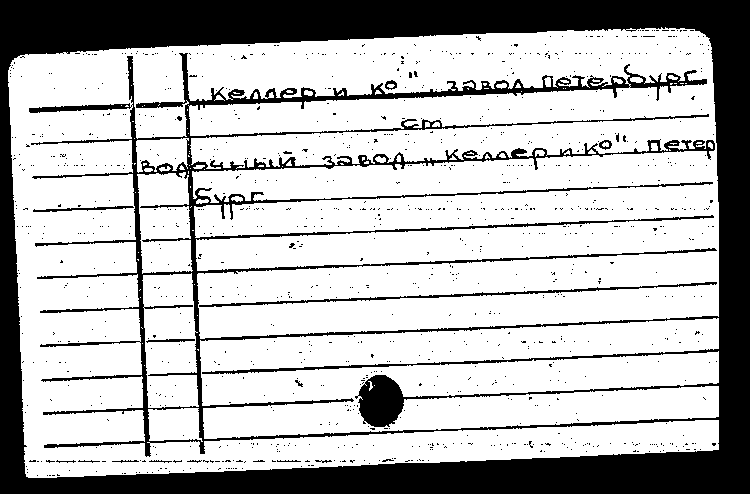 „Келлер и Ко", завод. Петербург
см.
Водочный завод „Келлер и Ко". Петер
бург.